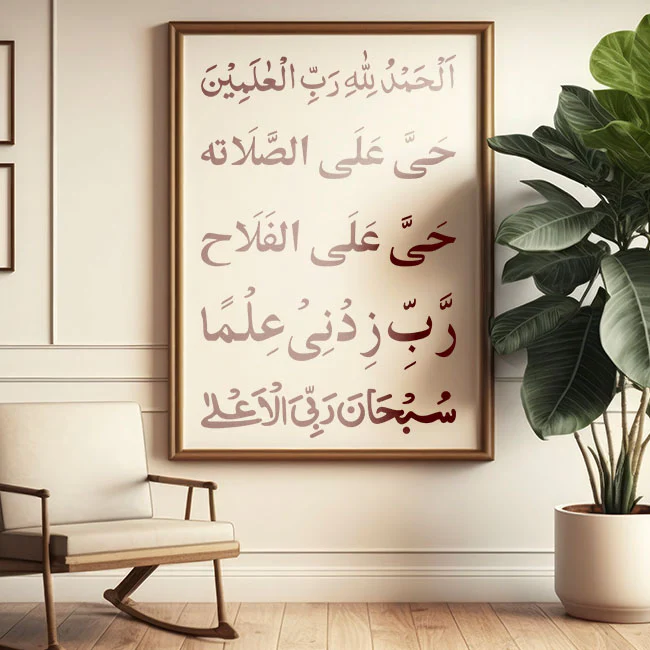 اَلْحَمْدُ لِلّٰهِ رَبِّ الْعٰلَمِيْنَ
حَىَّ عَلَى الصَّلَاته
حَىَّ عَلَى الفَلَاح
رَّبِّ زِدْنِىْ عِلْمًا
سُبْحَانَ رَبِّىَ الْاَعْلىٰ